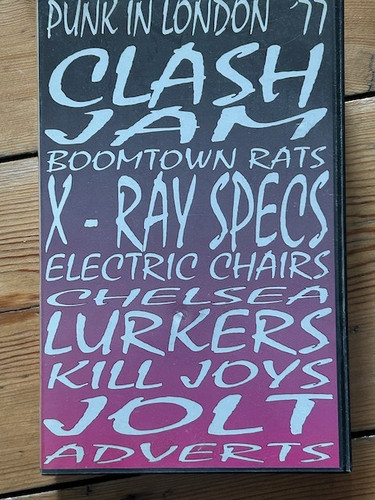 PUNK IN LONDON '77
CLASH
JAM
BOOMTOWN RATS
X - RAY SPECS
ELECTRIC CHAIRS
CHELSEA
LURKERS
KILL JOYS
JOLT
ADVERTS